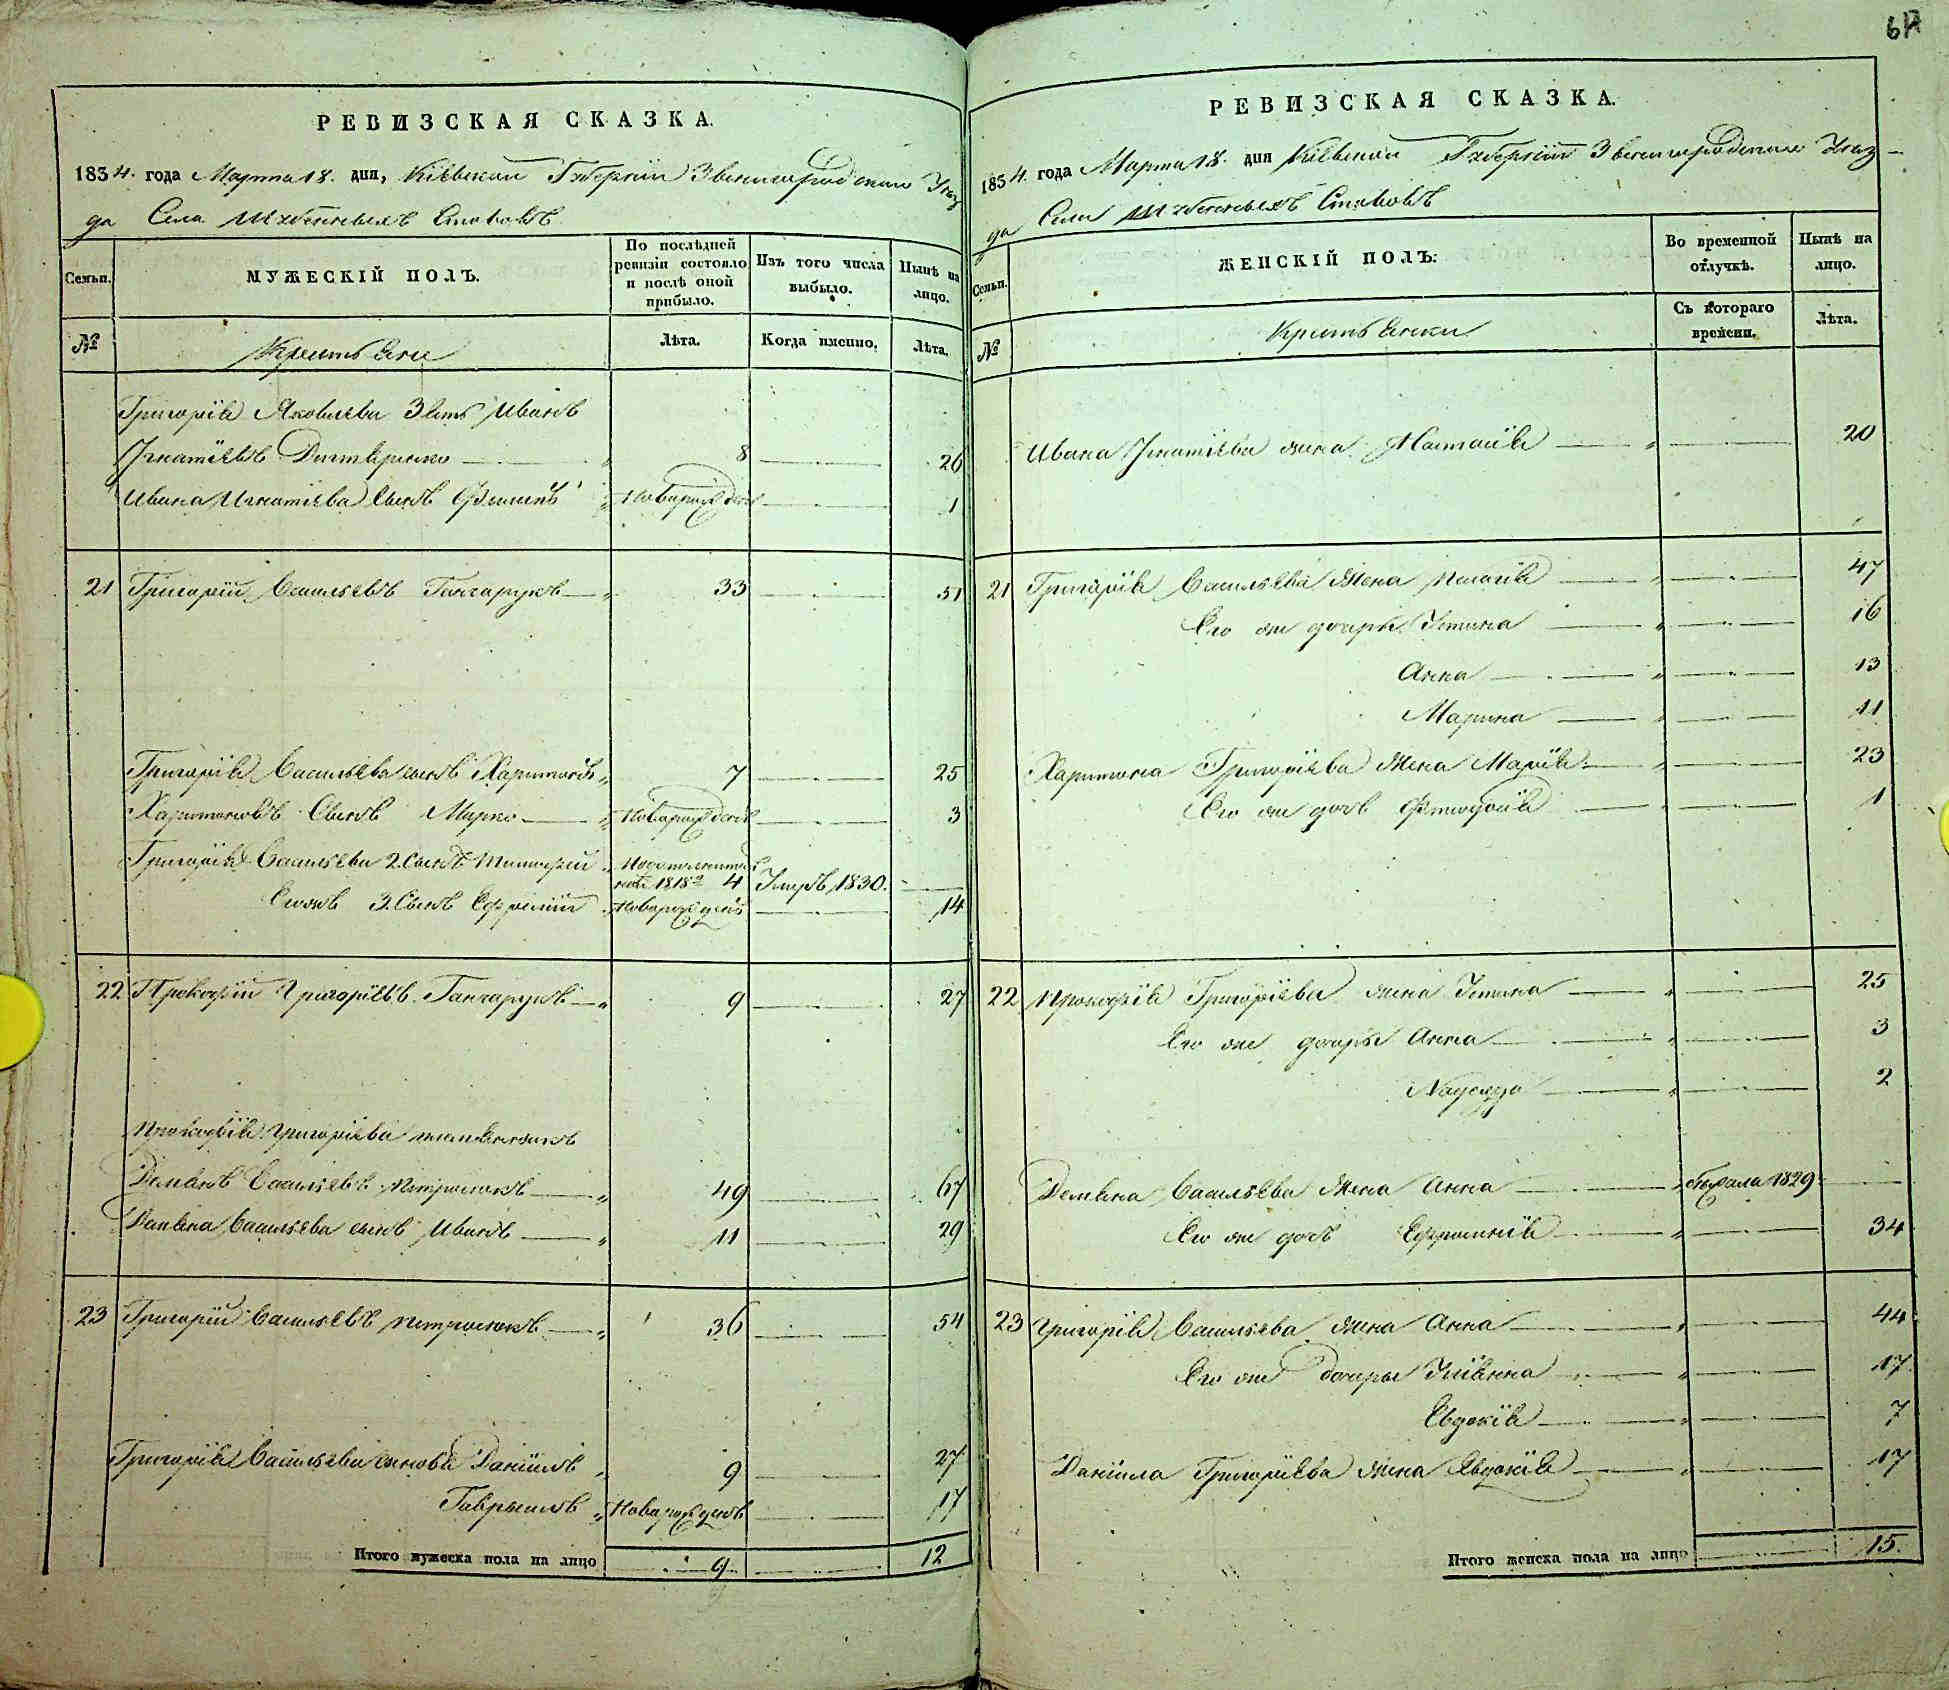 67
РЕВИЗСКАЯ СКАЗКА.
1834. года Марта 18. дня, Кіевской Губерніи Звенигородскаго Уѣз
да Села Шубенныхъ Ставовъ
Семьи.
МУЖЕСКІЙ ПОЛЪ.
По послѣдней ревизіи состояло и послѣ оной прибыло.
Изъ того числа выбыло.
Нынѣ на лицо.
№
Крестьяне
Лѣта.
Когда именно.
Лѣта.
Григорія Яковлева Зять Иванъ
Игнатіевъ 8 26
Ивана Игнатіева Сынъ Новорожденъ 1
21 Григорій Васильевъ Ганчарукъ 33 51
Григорія Васильева сынъ Харитонъ 7 25
Харитоновъ Сынъ Марко Новорожденъ 3
Григорія Васильева 2. Сынъ Тимофей
1818 4 Умеръ 1830.
3. Сынъ Ефремій Новорожденъ 14
22 Прокофій Григоріевъ Ганчарукъ 9 27
Прокофія Григоріева
Демьянъ Васильевъ Петросюкъ 49 67
Демьяна Васильева сынъ Иванъ 11 29
23 Григорій Васильевъ Петросюкъ 36 54
Григорія Васильева сыновья Даніилъ 9 27
Гаврыилъ Новорожденъ 17
Итого мужеска пола на лицо 9 12
РЕВИЗСКАЯ СКАЗКА.
1834. года Марта 18. дня Кіевской Губерніи Звенигородскаго Уѣз-
да Села Шубенныхъ Ставовъ
Семьи.
ЖЕНСКІЙ ПОЛЪ.
Во временной отлучкѣ.
Нынѣ на лицо.
№
Крестьянки
Съ котораго времени.
Лѣта.
Ивана Игнатіева жена Настасія 20
21 Григорія Васильева Жена Пелагія 47
Его же дочери Устина 16
Анна 13
Марина 11
Харитона Григоріева Жена Марія 23
Его же дочь Феодосія 1
22 Прокофія Григоріева жена Устина 25
Его же дочери Анна 3
Надежда 2
Демьяна Васильева Жена Анна бѣжала 1829
Его же дочь Ефросинія 34
23 Григорія Васильева жена Анна 44
Его же дочери Уліянна 17
Евдокія 7
Даніила Григоріева жена Евдокія 17
Итого женска пола на лицо 15.